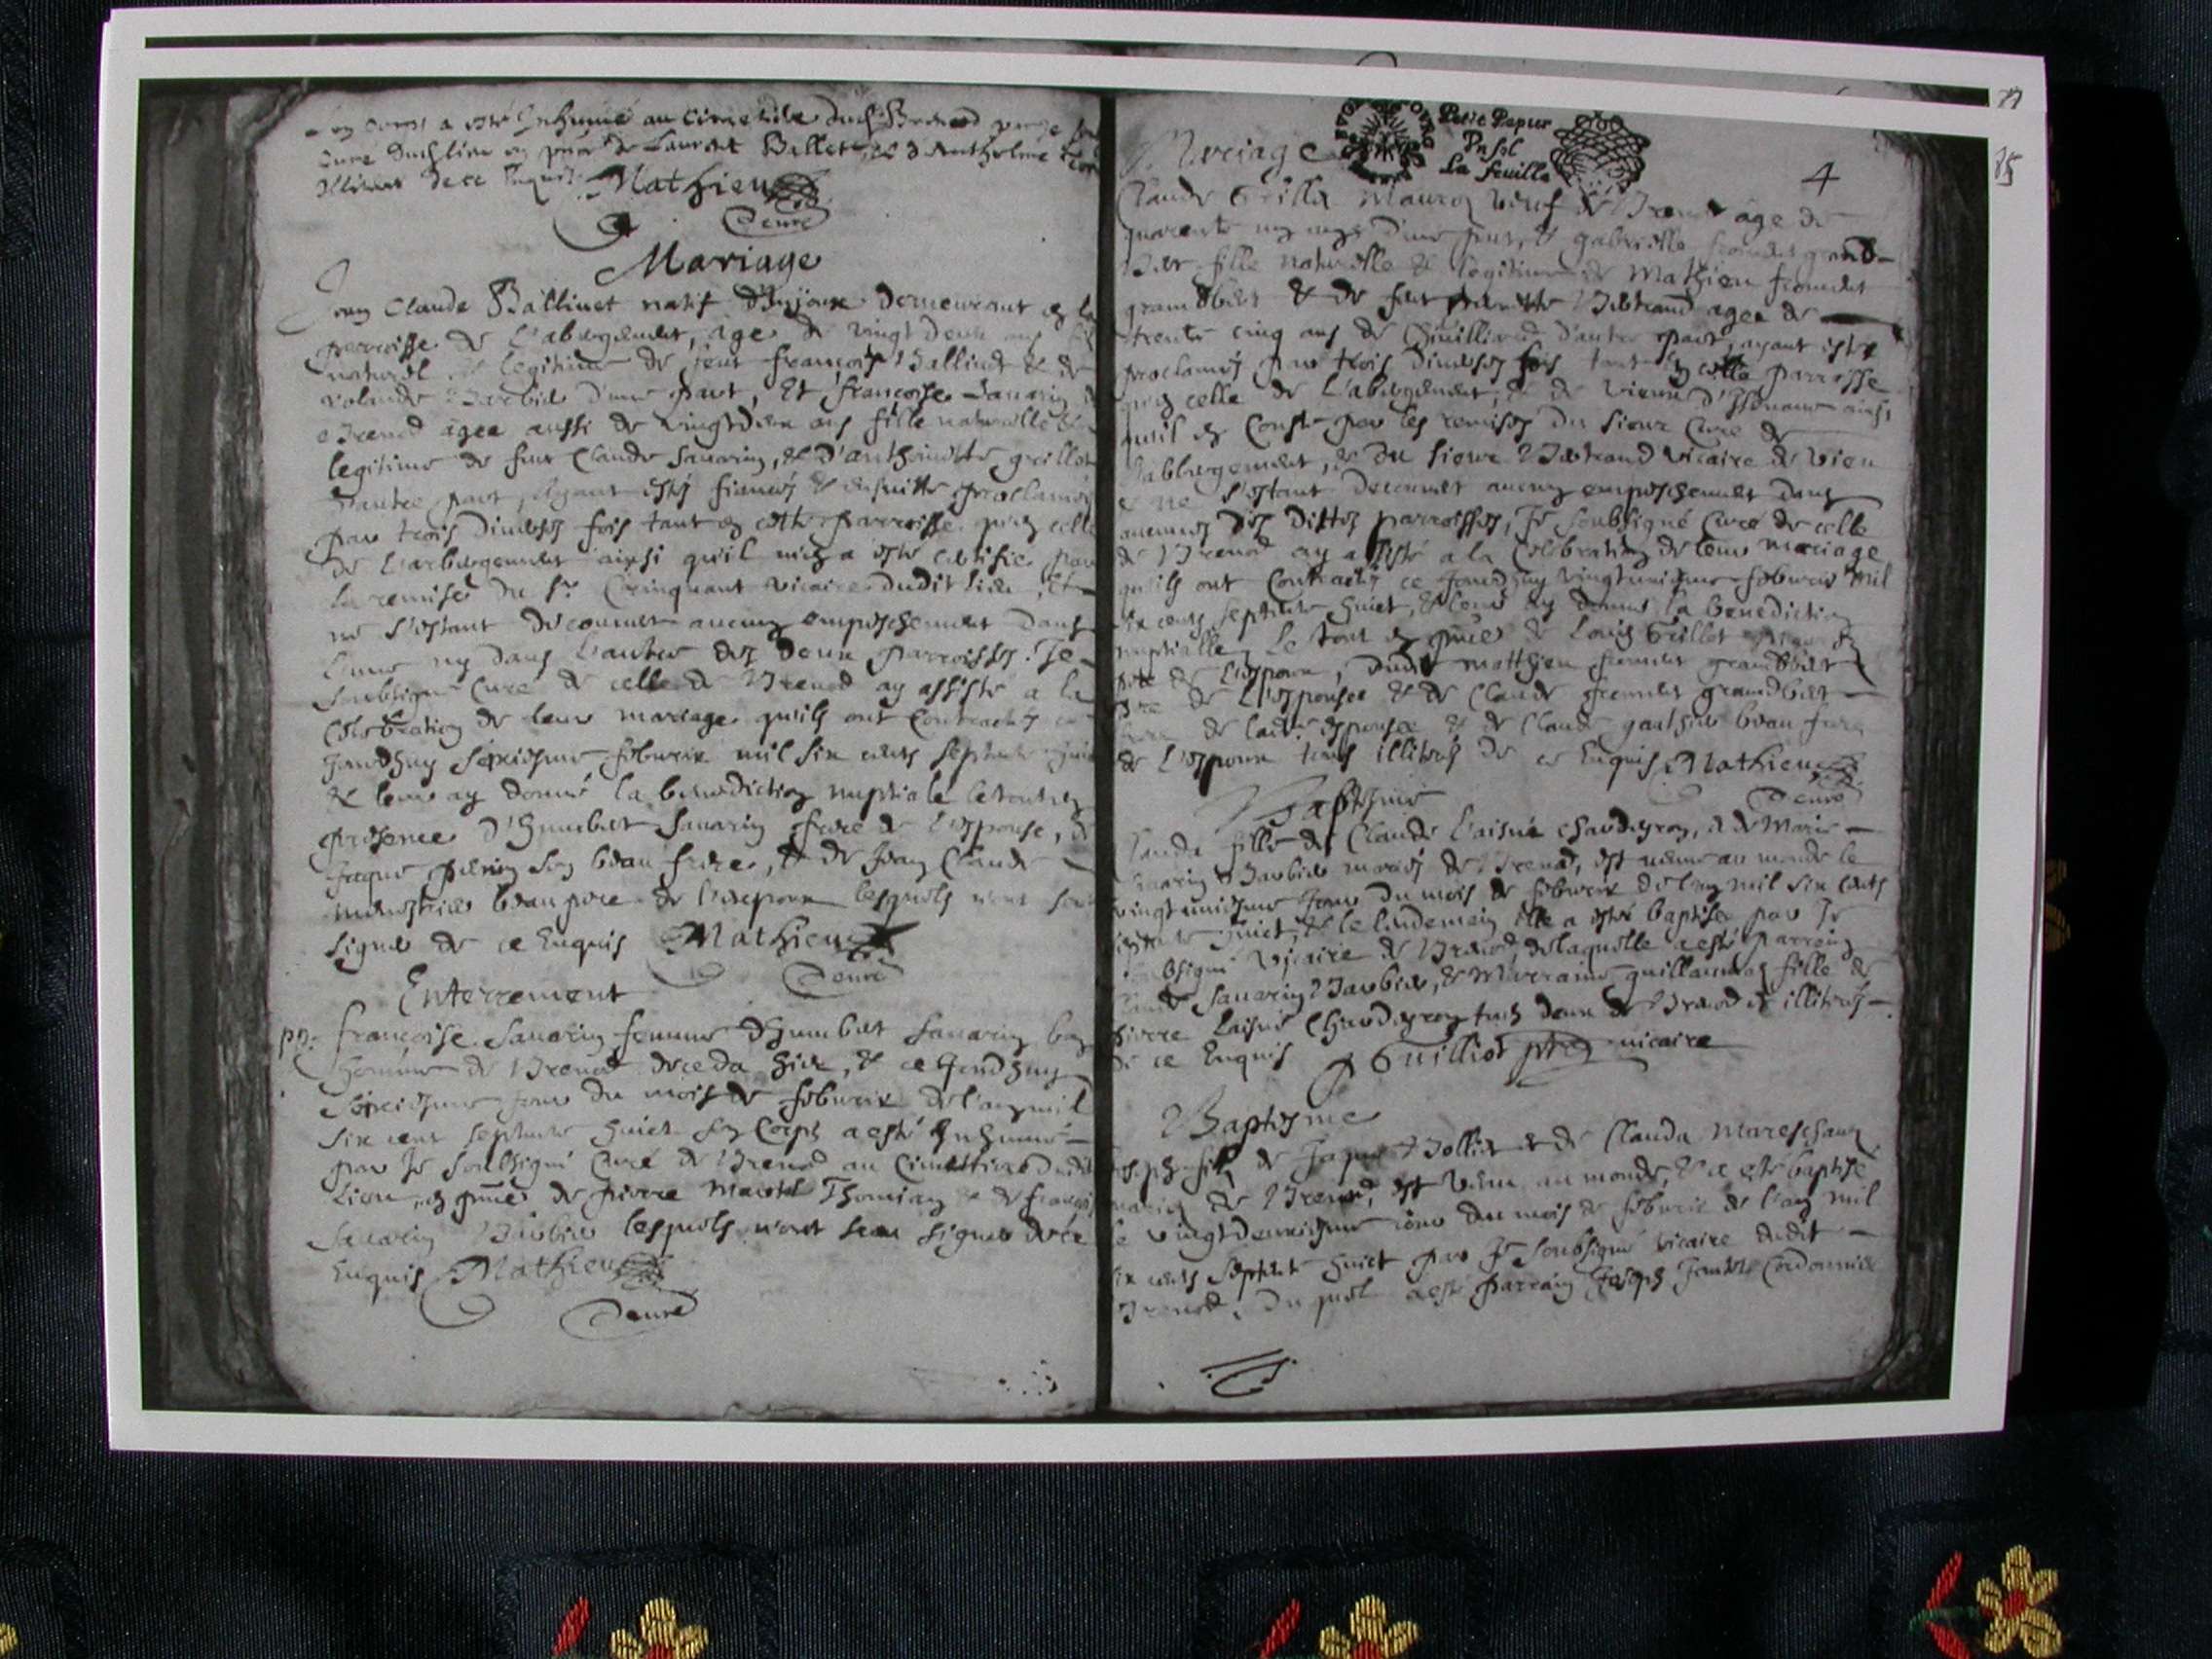 Son corps a esté Inhumé au Cimetiere dud. Brenod par je
Curé dud. lieu en pnce de Laurent Ballet, & d'Anthelme
Illiteres de ce Enquis Mathieu
Curé
Mariage
Jean Claude Ballinet natif d'Injoux demeurant en la
parroisse de L'abergement, âgé de vingt deux ans
naturel et legitime de feu françois Ballinet & de
rolande Barbier d'une part, Et françoise Sauarin de
Brenod âgée aussi de vingtdeux ans fille naturelle &
legitime de feu Claude Sauarin, & d'anthoinette grillot
d'autre part, ayant estés fiancés & ensuitte proclamés
par trois diverses fois tant en cette parroisse qu'en celle
de L'arbergement ainsi qu'il m'en a esté certifié par
la remise du Sr. Crinquant vicaire dudit lieu, Et
ne s'estant decouuert aucun empeschement dans
l'une ny dans l'autre des deux parroisses. Je
soubsigné Curé de celle de Brenod ay assisté a la
Celebration de leur mariage qu'ils ont Contracté ce
Jourdhuy seziesme febvrier mil six cents septante huict
& leur ay donné la benediction nuptiale le tout en
presence d'humbert Sauarin frere de l'espouse, &
Jaques perrin son beau frere, & de Jean Claude
beau pere de l'espoux lesquels n'ont sceu
signer de ce Enquis Mathieu
Curé
Enterrement
françoise Sauarin femme d'humbert Sauarin bon
homme de Brenod deceda hier, & ce Jourdhuy
seziesme jour du mois de febvrier de l'an mil
six cent septante huict son Corps a esté Inhumé
par Je soubsigné Curé de Brenod au Cimettiere dudit
Lieu, en pnce de pierre Thomian & de françois
Sauarin Barbier lesquels n'ont sceu signer de ce
Enquis Mathieu
Curé
Petit Papier
Un sol
La feuille
Mariage
4
Claude Grillet Mauron veuf de Brenod âgé de
quarante ans d'une part, & gabrielle fromert grand-
Bert fille naturelle & legitime de Mathieu fromert
grandBert & de feue Bertrand agée de
trente cinq ans de Chevilliard d'autre part, ayant estés
proclamés par trois diverses fois tant en cette parroisse
qu'en celle de L'abergement, & de Vieux d'Isenaue ainsi
quil en Conste par les remises du sieur Curé de
l'abbergement, & du sieur Bertrand vicaire de vieu
& ne s'estant decouuert aucun empeschement dans
aucunes des dittes parroisses, Je soubsigné Curé de celle
de Brenod ay assisté a la Celebration de leur mariage
qu'ils ont Contracté ce Jourdhuy vingtuniesme febvrier mil
six cents septante huict, & leur ay donné la benediction
nuptialle, Le tout en pnce de Louis Grillet
de L'espoux, dudit matthieu fromert grandBert
pere de L'espousee & de Claude fromert grandbert
frere de ladte espousee & de Claude gauthier beau frere
de L'espoux tous illiteres de ce Enquis Mathieu
Curé
Baptesme
Clauda fille de Claude L'aisné Chaudegron, & de Marie
Sauarin Barbier mariés de Brenod, est venue au monde le
vingtuniesme Jour du mois de febvrier de l'an mil six cents
septante huict, & le lendemain elle a esté baptisée par Je
soubsigné Vicaire de Brenod, de laquelle a esté parrein
Claude Sauarin Barbier, & Marraine guillaumaz fille de
pierre Laisné Chaudegron tous deux de Brenod & illiteres
de ce Enquis J Guilliot pbre vicaire
Baptesme
Joseph fils de Jaques Bollier & de Clauda Mareschaux
mariés de Brenod, est venu au monde, & a esté baptisé
le vingtdeuxiesme jour du mois de febvrier de l'an mil
six cents septante huict par Je soubsigné vicaire dudit
Brenod, du quel a esté parrain Joseph Cordonnier